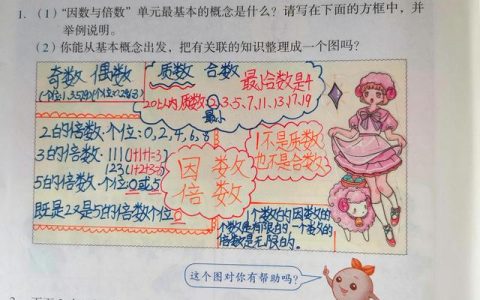 1. (1)“因数与倍数”单元最基本的概念是什么？请写在下面的方框中，并
举例说明。
(2)你能从基本概念出发，把有关联的知识整理成一个图吗？
奇数 偶数
质数 合数
最小合数是4
20以内质数:2、3、5、7、11、13、17、19
最小
2的倍数·个位:0,2,4,6,8
3的倍数·111(1+1+1=3)
123(1+2+3=
5的倍数·个位:0或5
既是2又是5的倍数个位0
因数
倍数
1不是质数
也不是合数
1个数的的因数的
个数是有限的,一个数的
倍数是无限的。
这个图对你有帮助吗？